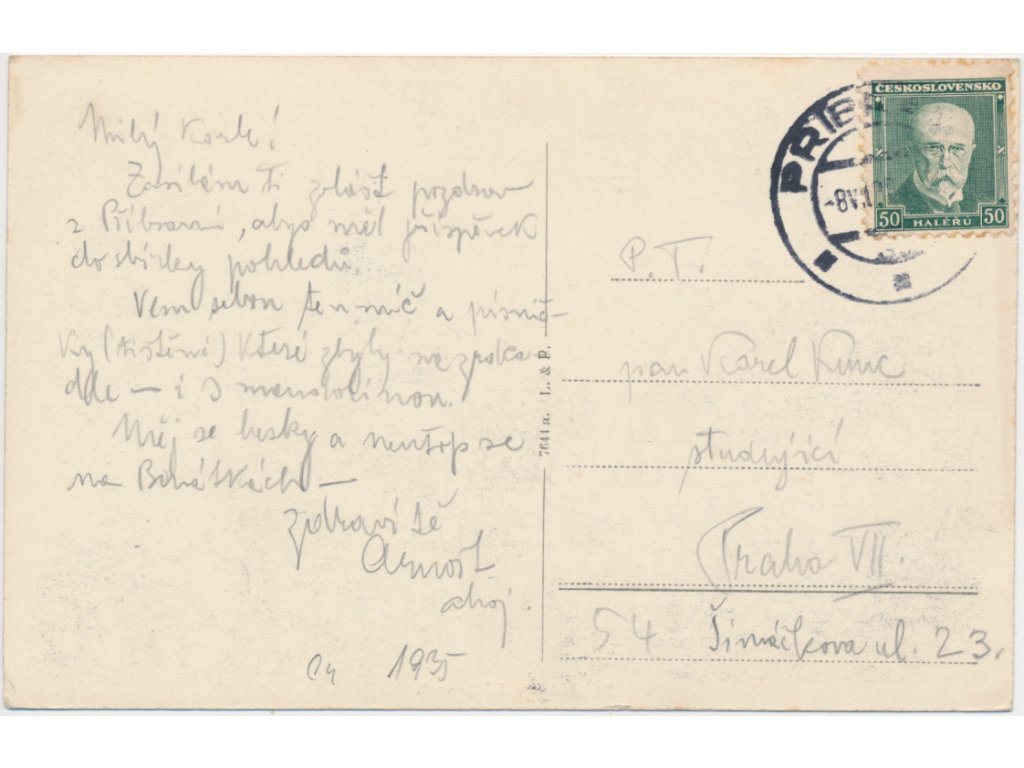 Milý Karle!
Zasílám Ti zvlášť pozdrav
z Příbrami, abys měl příspěvek
do sbírky pohledů.
Vem sebou ten míč a písnič-
ky (tištěné) které zbyly na
dle — i s mandolinou.
Měj se hesky a neutop se
na —
zdraví tě
Arnošt
ahoj.
1935
7644 a. L. & P.
ČESKOSLOVENSKO
50 HALÉŘŮ 50
PŘÍB
-8.VI.
P. T.
pan Karel Kunc
studující
Praha VII.
54 Šimáčkova ul. 23.